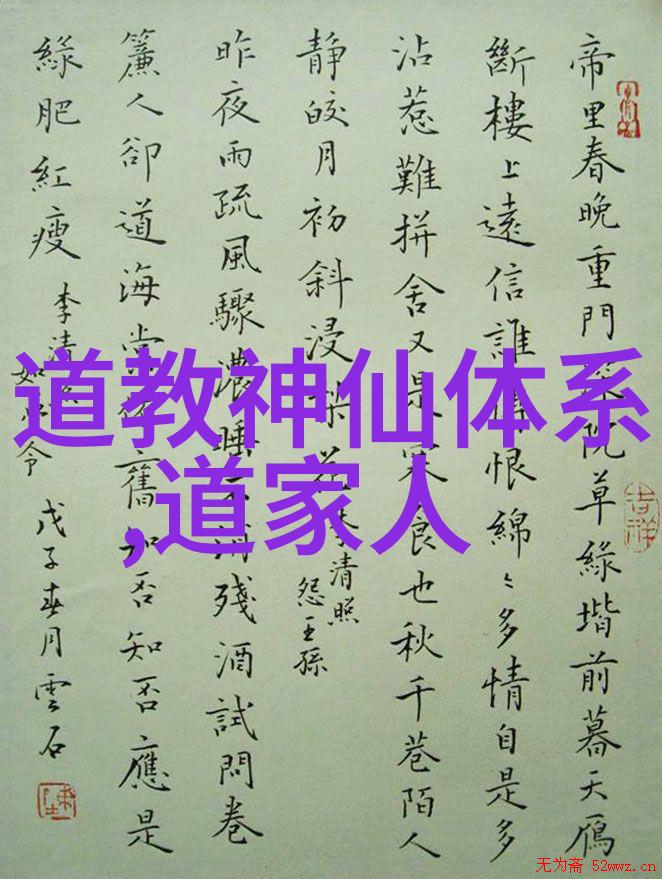 帝里春晚重門深院草綠堦前暮天鴈
斷樓上遠信誰傳恨綿〻多情自是多
沾惹難拼舍又是寒食也秋千巷陌人
静皎月初斜浸梨花
李清照
怨王孫
昨夜雨疏風驟濃睡不消殘酒試問卷
簾人卻道海棠依舊知否知否應是
綠肥紅瘦
李清照
如夢令
戊子春月雲石
道教神仙体系
,道家人
吉祥
无为斋 52wwz.cn